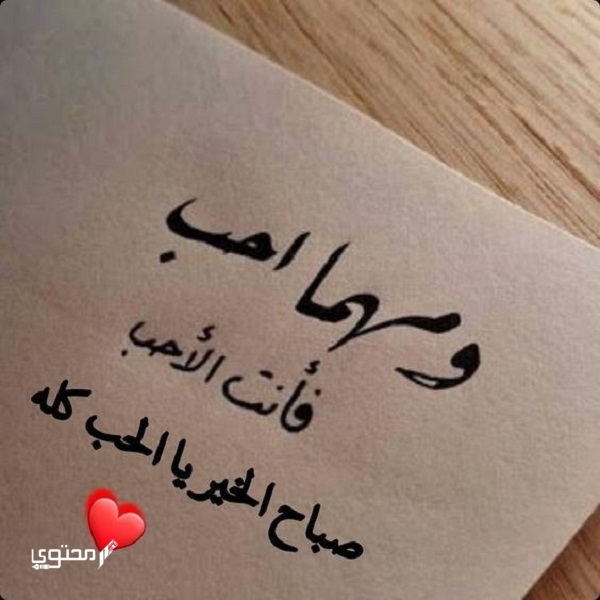 ومهما احب
فأنت الأحب
صباح الخير يا الحب كله
محتوي